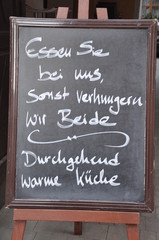 Essen Sie
bei uns,
Sonst verhungern
Wir Beide
Durchgehend
warme Küche